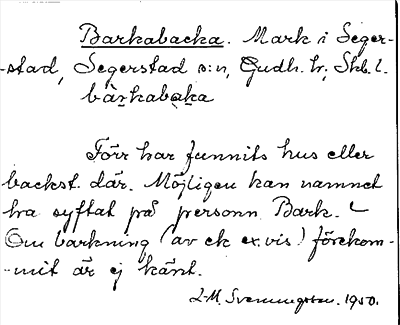 Barkabacka. Mark i Seger-
-stad, Segerstad s:n, Gudh. hr, Skb. l.
bàrkabaka
Förr har funnits hus eller
backst. där. Möjligen kan namnet
ha syftat på personn. Bark.
Om barkning (av ek ex.vis) förekom-
-mit är ej känt.
L-M. Svenungsson. 1950.